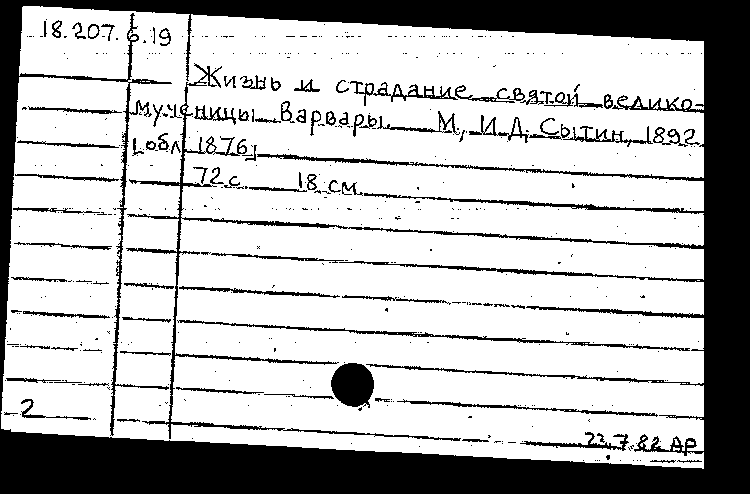 18.207.6.19
Жизнь и страдание святой велико-
мученицы Варвары. М., И.Д. Сытин, 1892
[обл. 1876]
72 с. 18 см.
2
23.7.82 АР